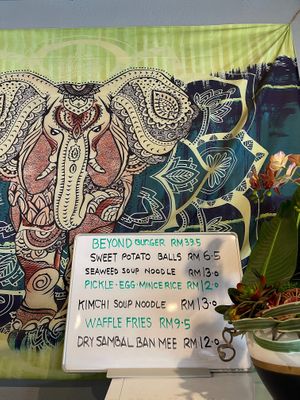 BEYOND BURGER RM39.5
SWEET POTATO BALLS RM 6.5
SEAWEED SOUP NOODLE RM 13.0
PICKLE·EGG·MINCE RICE RM 12.0
KIMCHI SOUP NOODLE RM 13.0
WAFFLE FRIES RM 9.5
DRY SAMBAL BAN MEE RM 12.0